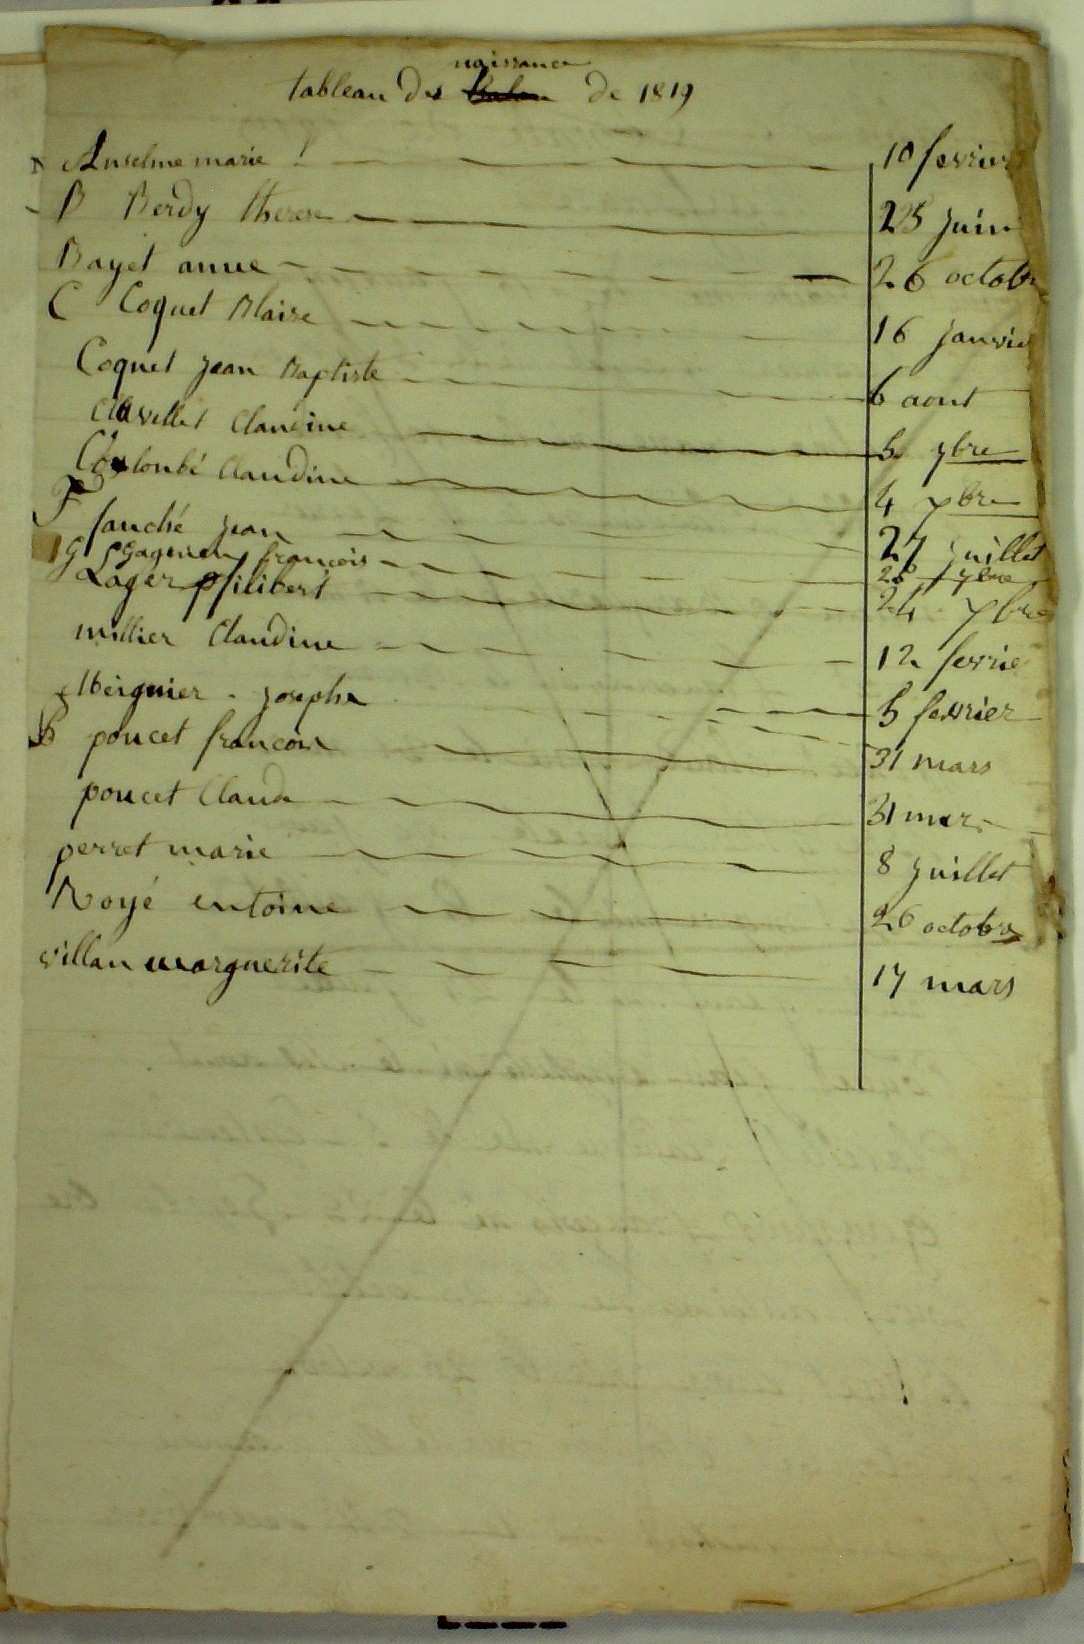 naissance
tableau des de 1819
Anselme marie 10 fevrier
B Berdy therese 25 juin
Bayet anne 26 octobre
C Coquet Blaise 16 janvier
Coquet jean Baptiste 6 aout
Clavillet Claudine 5 7bre
Coulonbé Claudine 4 7bre
F fauché jean 27 juillet
G Gagneur françois 28 7bre
Lager philibert 24 7bre
millier Claudine 12 fevrier
Meignier josephe 5 fevrier
P poucet francois 31 mars
poucet Claude 31 mars
perret marie 8 juillet
Royé entoine 26 octobre
villan marguerite 17 mars